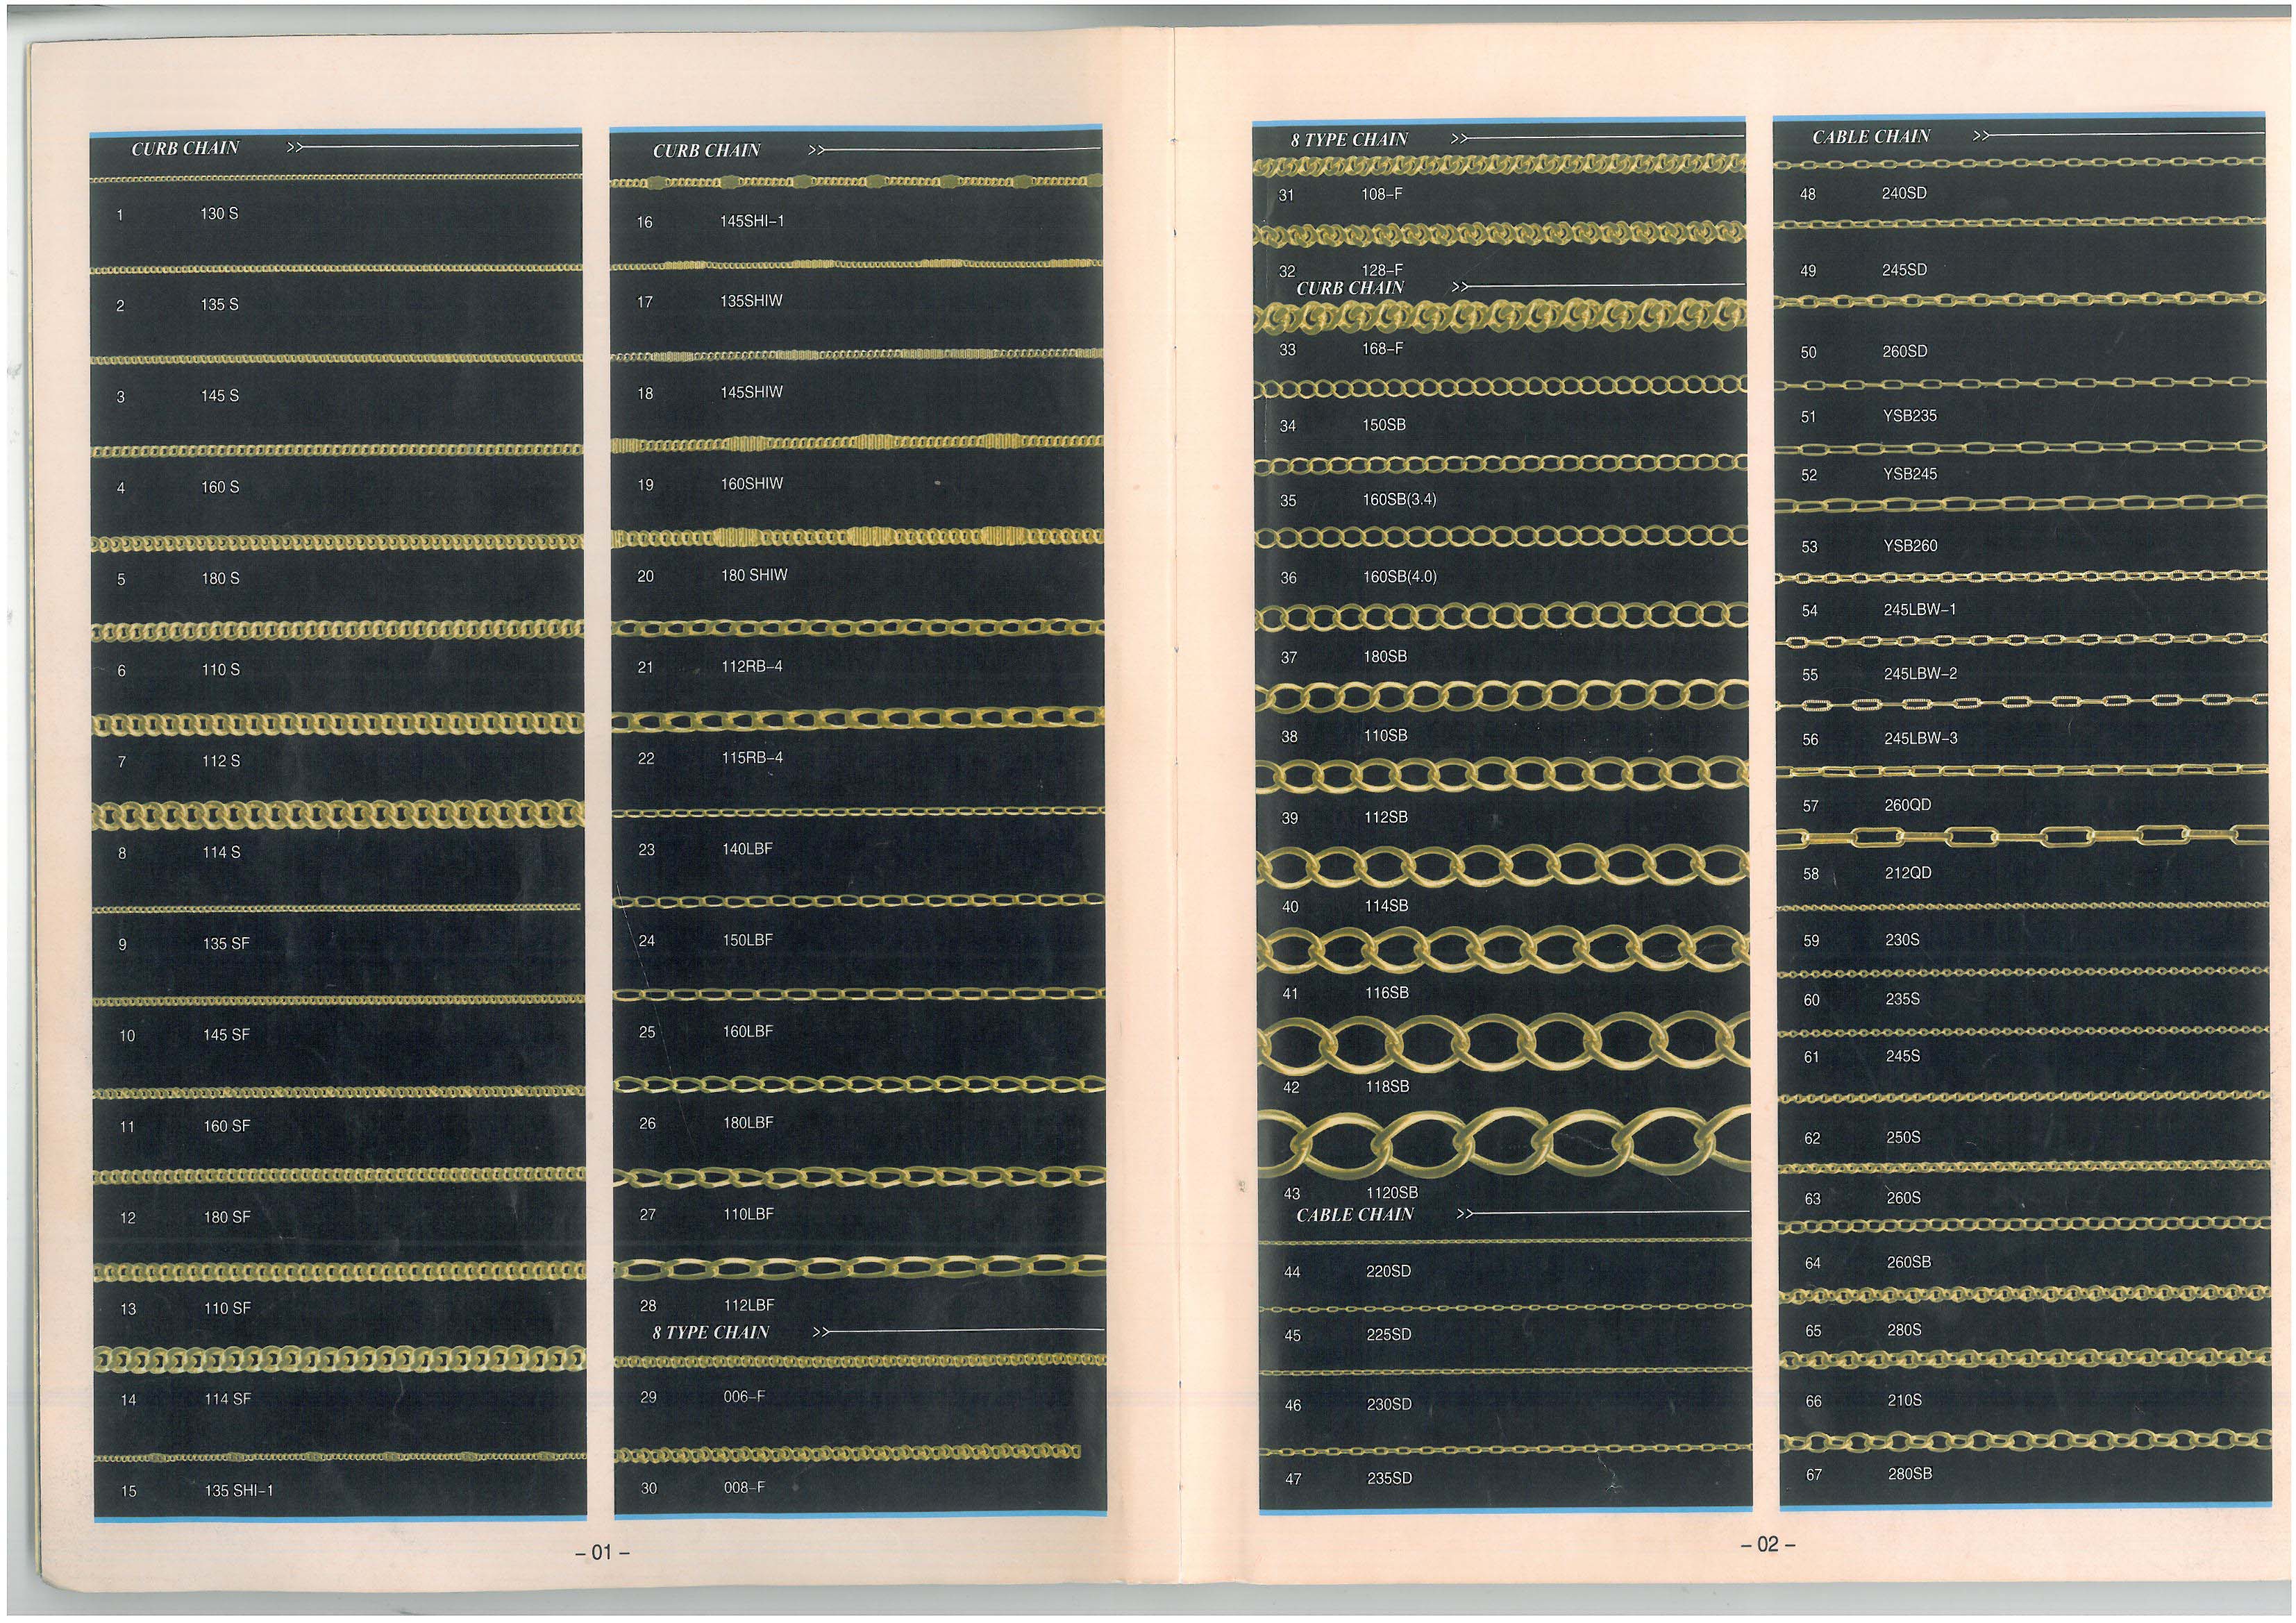 CURB CHAIN >>
1 130 S
2 135 S
3 145 S
4 160 S
5 180 S
6 110 S
7 112 S
8 114 S
9 135 SF
10 145 SF
11 160 SF
12 180 SF
13 110 SF
14 114 SF
15 135 SHI-1
CURB CHAIN >>
16 145SHI-1
17 135SHIW
18 145SHIW
19 160SHIW
20 180 SHIW
21 112RB-4
22 115RB-4
23 140LBF
24 150LBF
25 160LBF
26 180LBF
27 110LBF
28 112LBF
8 TYPE CHAIN >>
29 006-F
30 008-F
- 01 -
8 TYPE CHAIN >>
31 108-F
32 128-F
CURB CHAIN >>
33 168-F
34 150SB
35 160SB(3.4)
36 160SB(4.0)
37 180SB
38 110SB
39 112SB
40 114SB
41 116SB
42 118SB
43 1120SB
CABLE CHAIN >>
44 220SD
45 225SD
46 230SD
47 235SD
CABLE CHAIN >>
48 240SD
49 245SD
50 260SD
51 YSB235
52 YSB245
53 YSB260
54 245LBW-1
55 245LBW-2
56 245LBW-3
57 260QD
58 212QD
59 230S
60 235S
61 245S
62 250S
63 260S
64 260SB
65 280S
66 210S
67 280SB
- 02 -